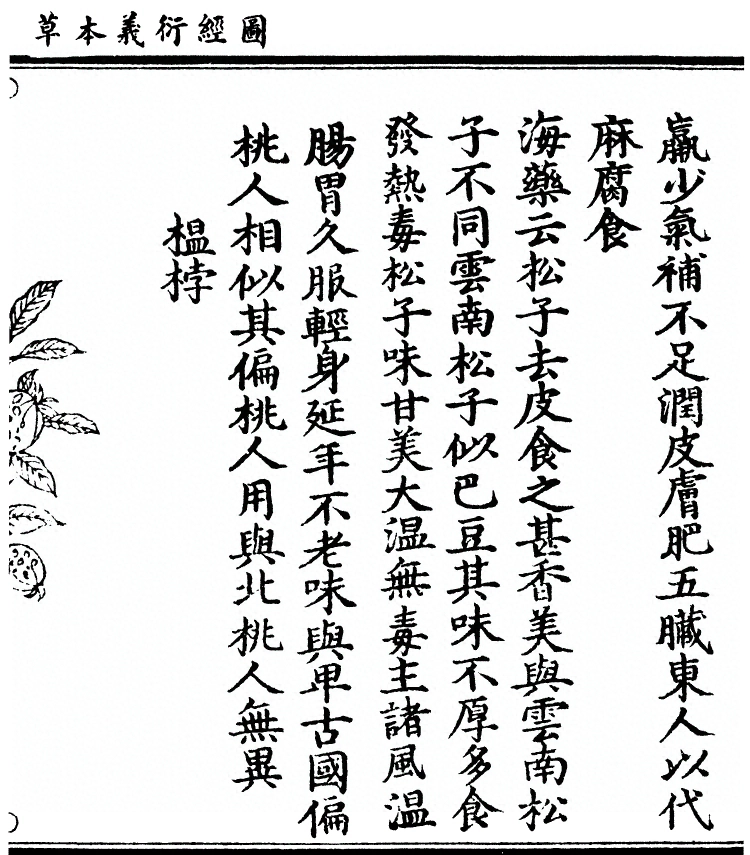 圖經衍義本草
羸少氣補不足潤皮膚肥五臟東人以代
麻腐食
海藥云松子去皮食之甚香美與雲南松
子不同雲南松子似巴豆其味不厚多食
發熱毒松子味甘美大溫無毒主諸風溫
腸胃久服輕身延年不老味與卑古國偏
桃人相似其偏桃人用與北桃人無異
榅桲